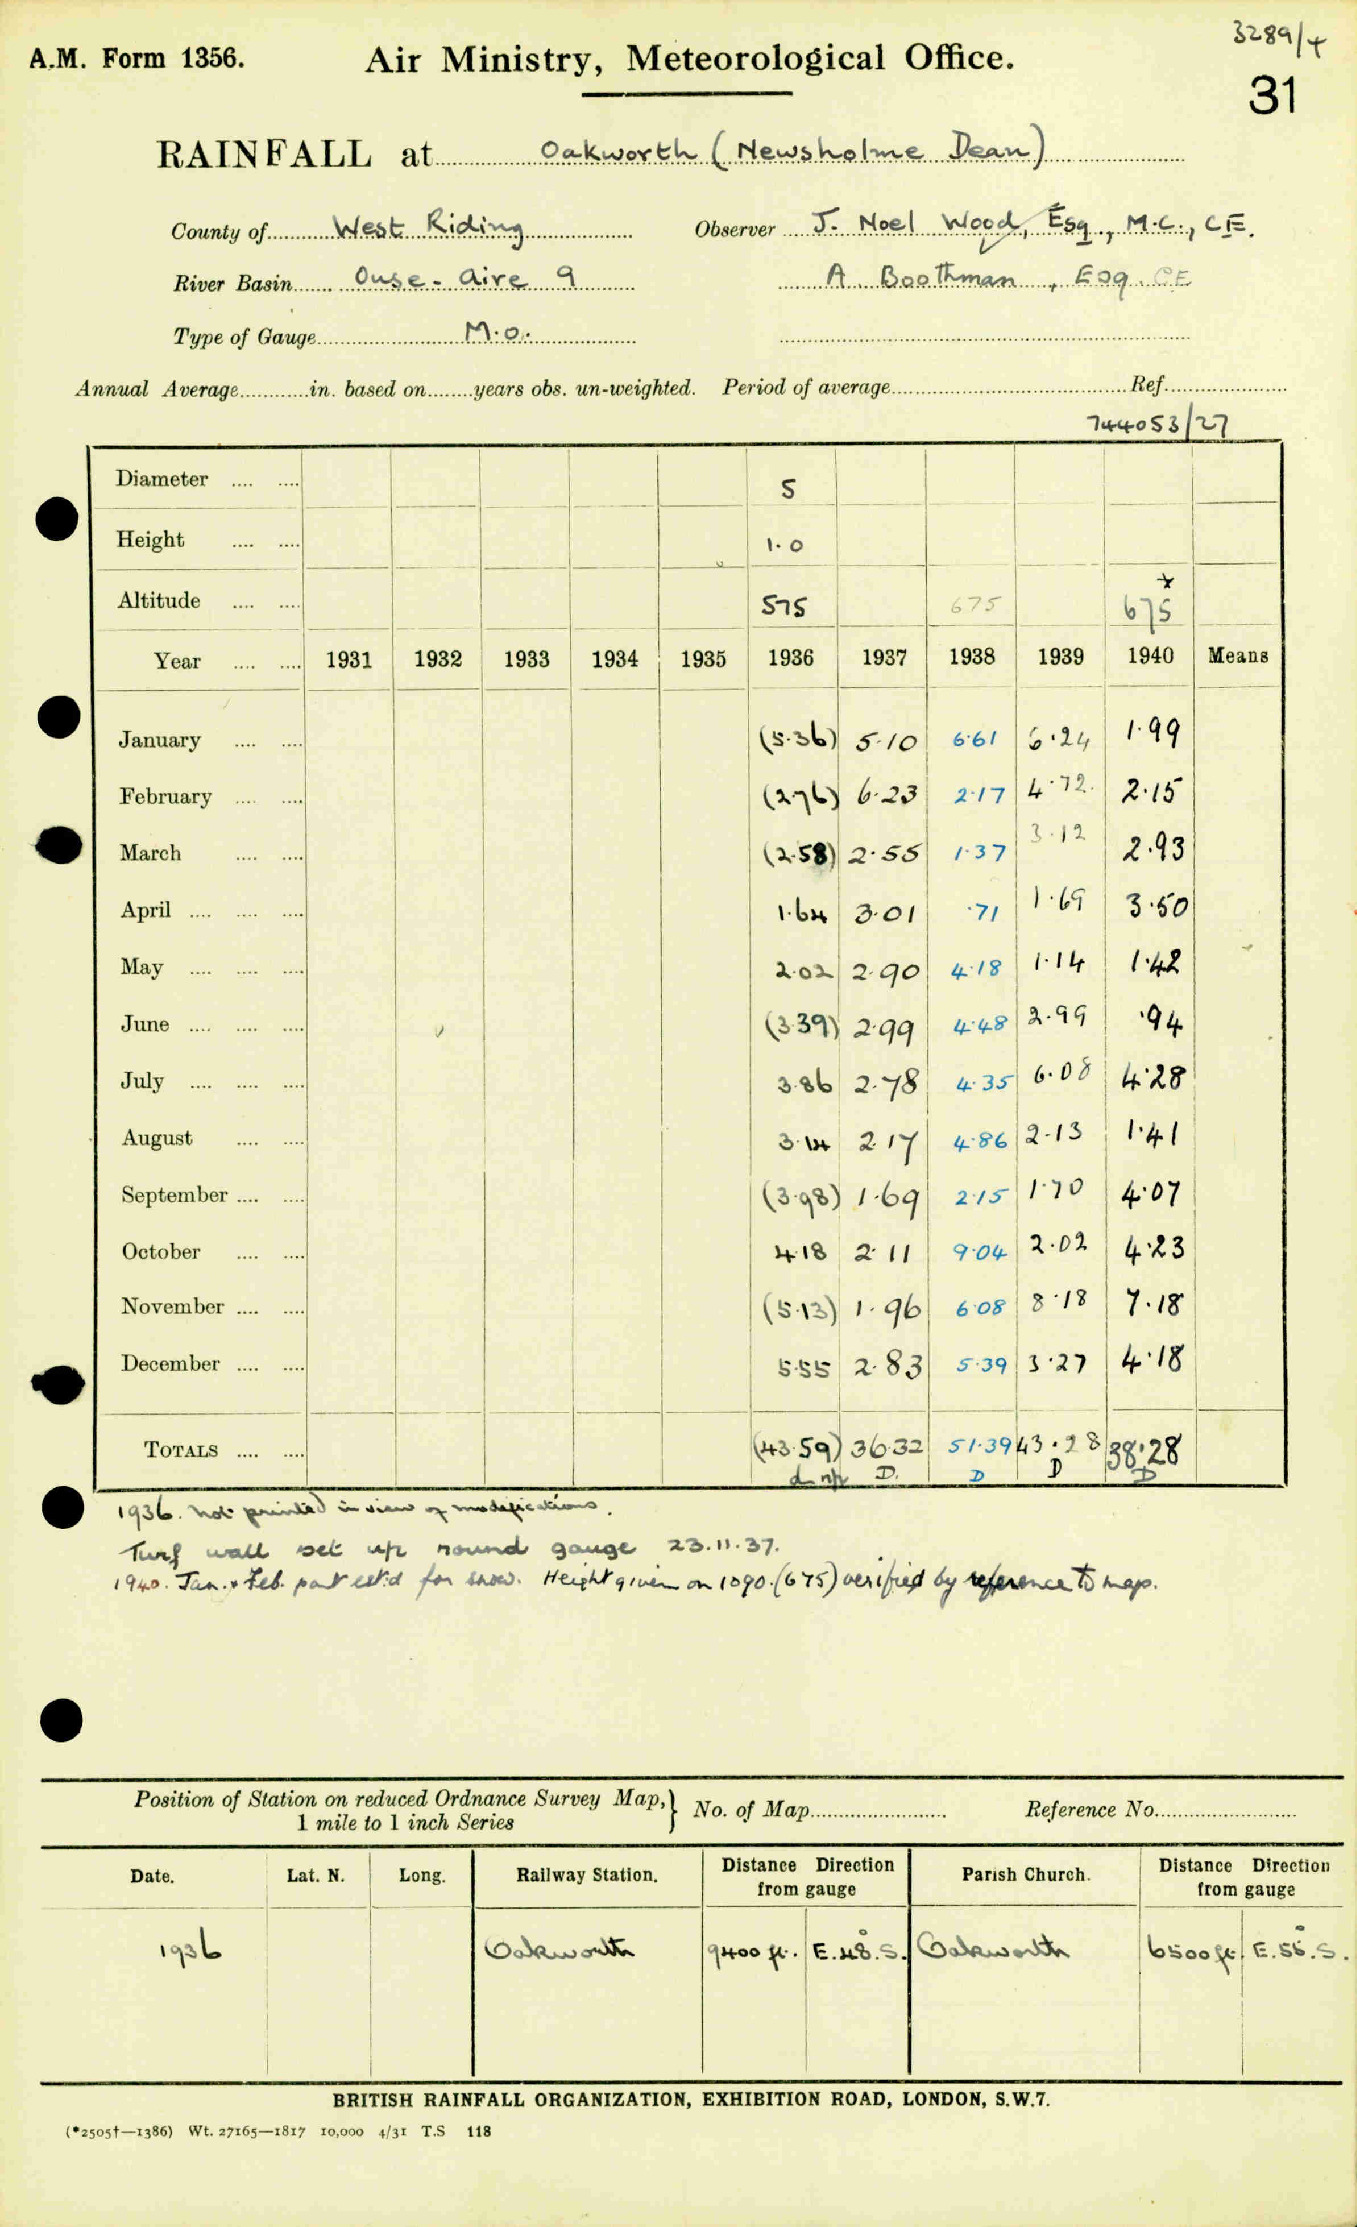 3289/4
A.M. Form 1356. Air Ministry, Meteorological Office.
31
RAINFALL at Oakworth (Newsholme Dean)
County of West Riding Observer J. Noel Wood, Esq., M.C., C.E.
River Basin Ouse - Aire 9 A. Boothman, Esq. CE
Type of Gauge M.O.
Annual Average in. based on years obs. un-weighted. Period of average Ref.
744053/27
Diameter 5
Height 1.0
Altitude 575 675 675*
Year 1931 1932 1933 1934 1935 1936 1937 1938 1939 1940 Means
January (5.36) 5.10 6.61 6.24 1.99
February (2.76) 6.23 2.17 4.72 2.15
March (2.58) 2.55 1.37 3.12 2.93
April 1.64 3.01 .71 1.69 3.50
May 2.02 2.90 4.18 1.14 1.42
June (3.39) 2.99 4.48 2.99 .94
July 3.86 2.78 4.35 6.08 4.28
August 3.14 2.17 4.86 2.13 1.41
September (3.98) 1.69 2.15 1.70 4.07
October 4.18 2.11 9.04 2.02 4.23
November (5.13) 1.96 6.08 8.18 7.18
December 5.55 2.83 5.39 3.27 4.18
TOTALS (43.59) 36.32 51.39 43.28 38.28
d np D. D D D
1936. Not printed in view of modifications.
Turf wall set up round gauge 23.11.37.
1940. Jan. & Feb. part est'd for snow. Height given on 1090. (675) verified by reference to map.
Position of Station on reduced Ordnance Survey Map, 1 mile to 1 inch Series } No. of Map Reference No.
Date. Lat. N. Long. Railway Station. Distance Direction from gauge Parish Church. Distance Direction from gauge
1936 Oakworth 9400 ft. E.48°.S. Oakworth 6500 ft. E.55°.S.
BRITISH RAINFALL ORGANIZATION, EXHIBITION ROAD, LONDON, S.W.7.
(*2505†—1386) Wt. 27165—1817 10,000 4/31 T.S 118